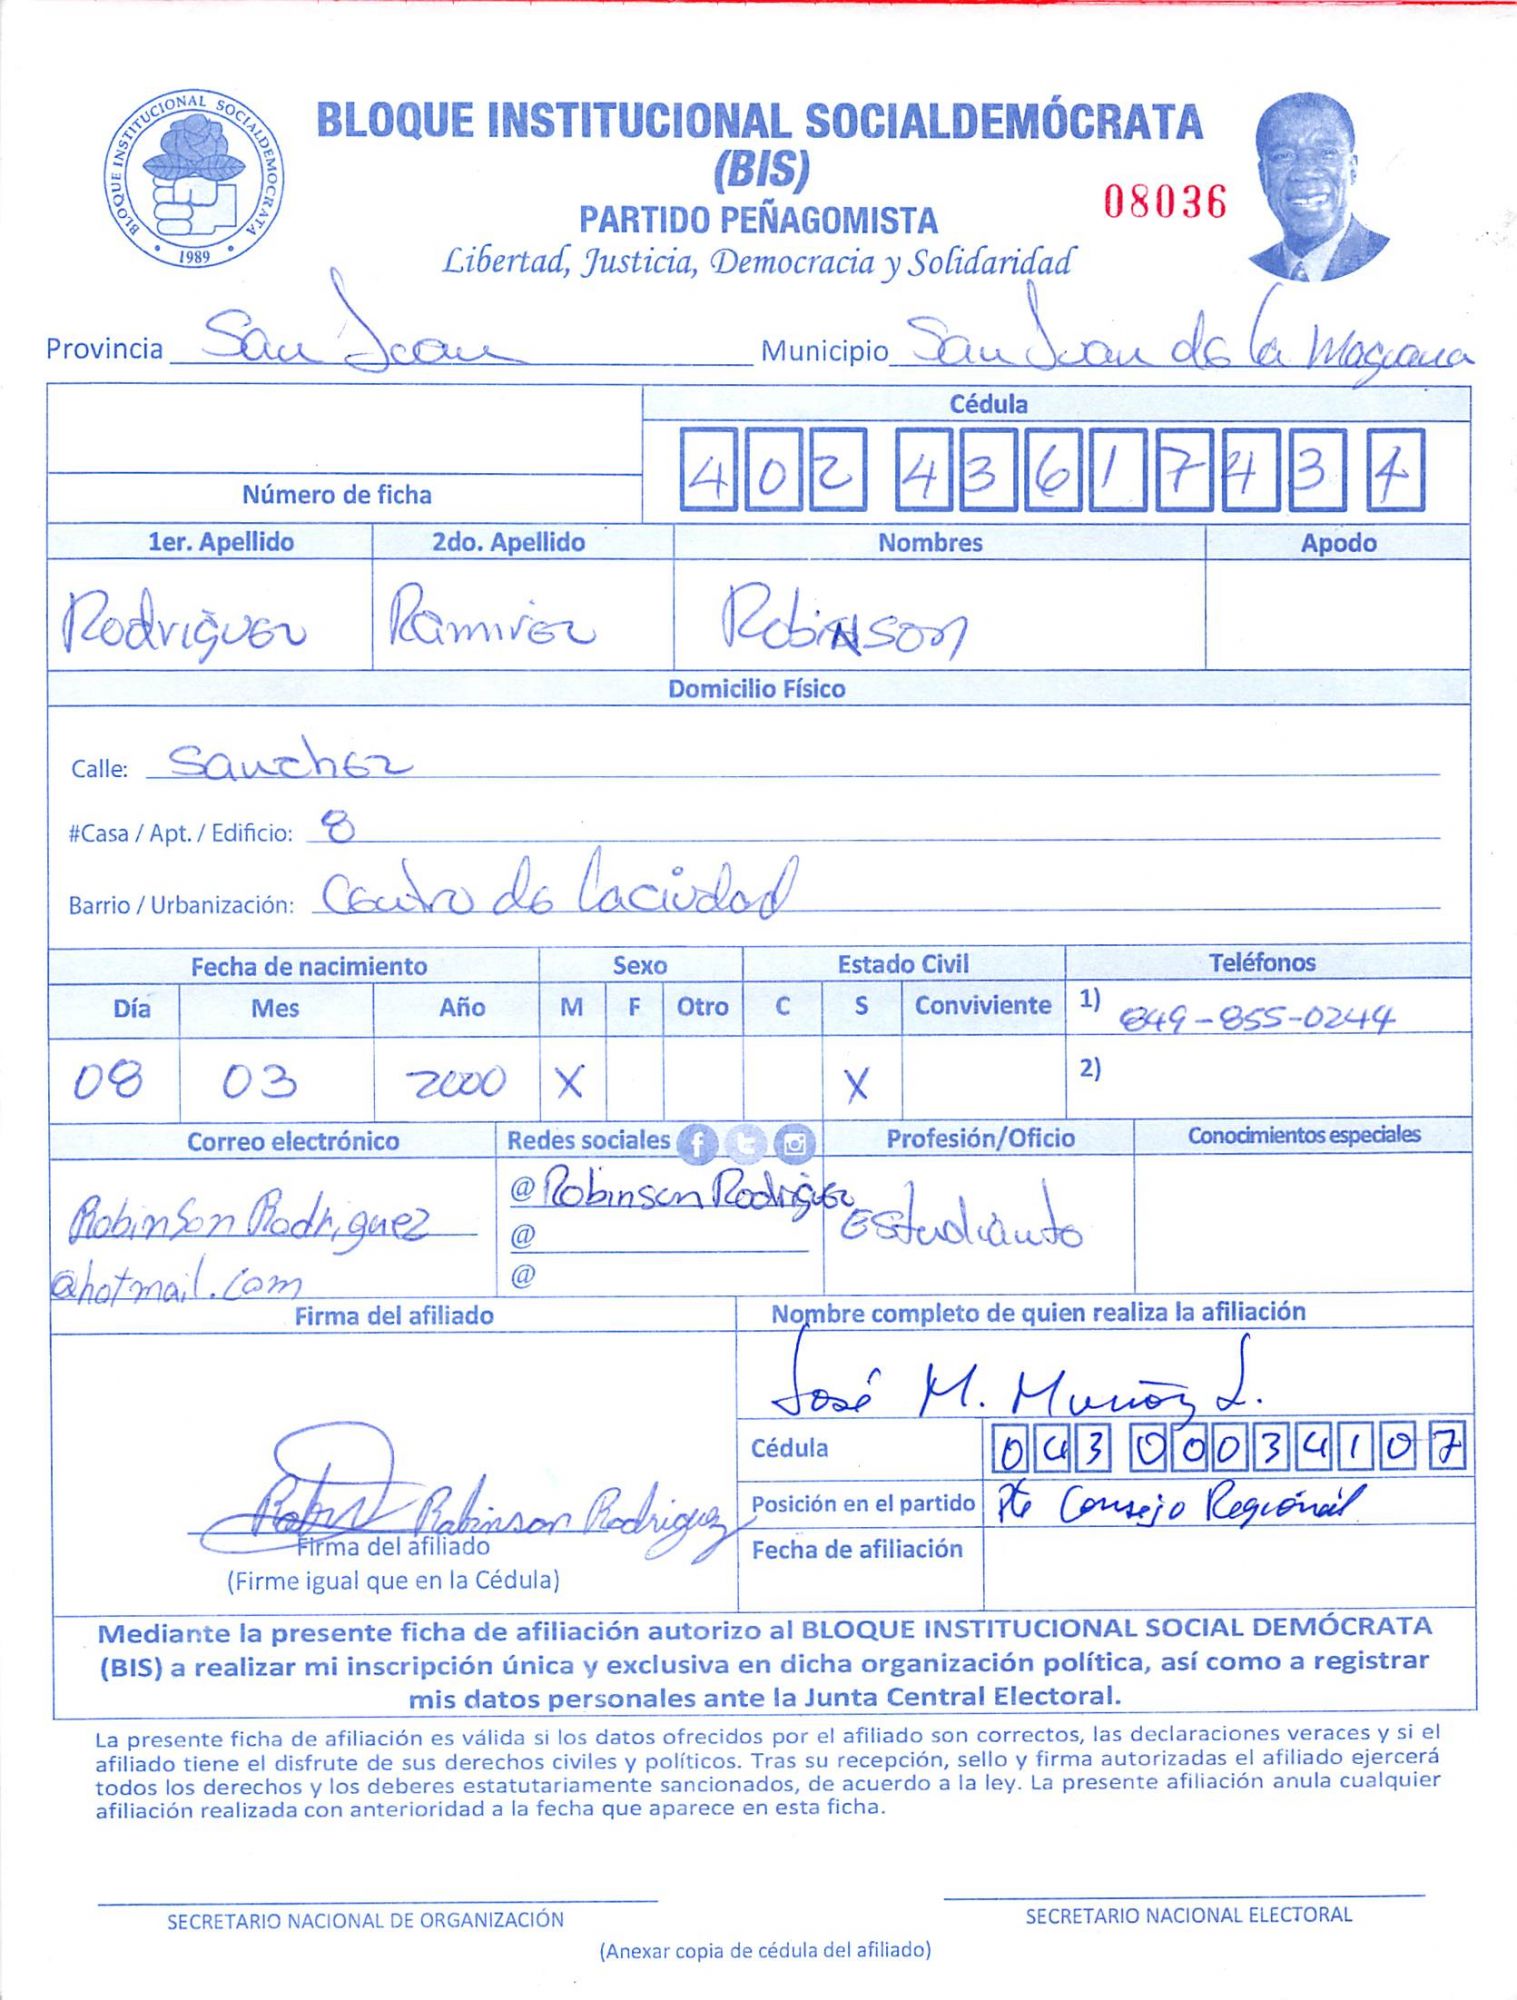 BLOQUE INSTITUCIONAL SOCIALDEMÓCRATA
BLOQUE INSTITUCIONAL SOCIALDEMOCRATA
1989
(BIS)
08036
PARTIDO PEÑAGOMISTA
Libertad, Justicia, Democracia y Solidaridad
Provincia San Juan Municipio San Juan de la Maguana
Cédula
402 4361743 4
Número de ficha
1er. Apellido 2do. Apellido Nombres Apodo
Rodriguez Ramirez Robinson
Domicilio Físico
Calle: Sanchez
#Casa / Apt. / Edificio: 8
Barrio / Urbanización: Centro de la ciudad
Fecha de nacimiento Sexo Estado Civil Teléfonos
Día Mes Año M F Otro C S Conviviente 1) 849-855-0244
08 03 2000 X X 2)
Correo electrónico Redes sociales Profesión/Oficio Conocimientos especiales
Robinson Rodriguez @ Robinson Rodriguez Estudiante
@hotmail.com @
@
Firma del afiliado Nombre completo de quien realiza la afiliación
José M. Muñoz L.
Cédula 043 0003410 7
Robinson Rodriguez Posición en el partido Pte Consejo Regional
Firma del afiliado Fecha de afiliación
(Firme igual que en la Cédula)
Mediante la presente ficha de afiliación autorizo al BLOQUE INSTITUCIONAL SOCIAL DEMÓCRATA
(BIS) a realizar mi inscripción única y exclusiva en dicha organización política, así como a registrar
mis datos personales ante la Junta Central Electoral.
La presente ficha de afiliación es válida si los datos ofrecidos por el afiliado son correctos, las declaraciones veraces y si el
afiliado tiene el disfrute de sus derechos civiles y políticos. Tras su recepción, sello y firma autorizadas el afiliado ejercerá
todos los derechos y los deberes estatutariamente sancionados, de acuerdo a la ley. La presente afiliación anula cualquier
afiliación realizada con anterioridad a la fecha que aparece en esta ficha.
SECRETARIO NACIONAL DE ORGANIZACIÓN SECRETARIO NACIONAL ELECTORAL
(Anexar copia de cédula del afiliado)